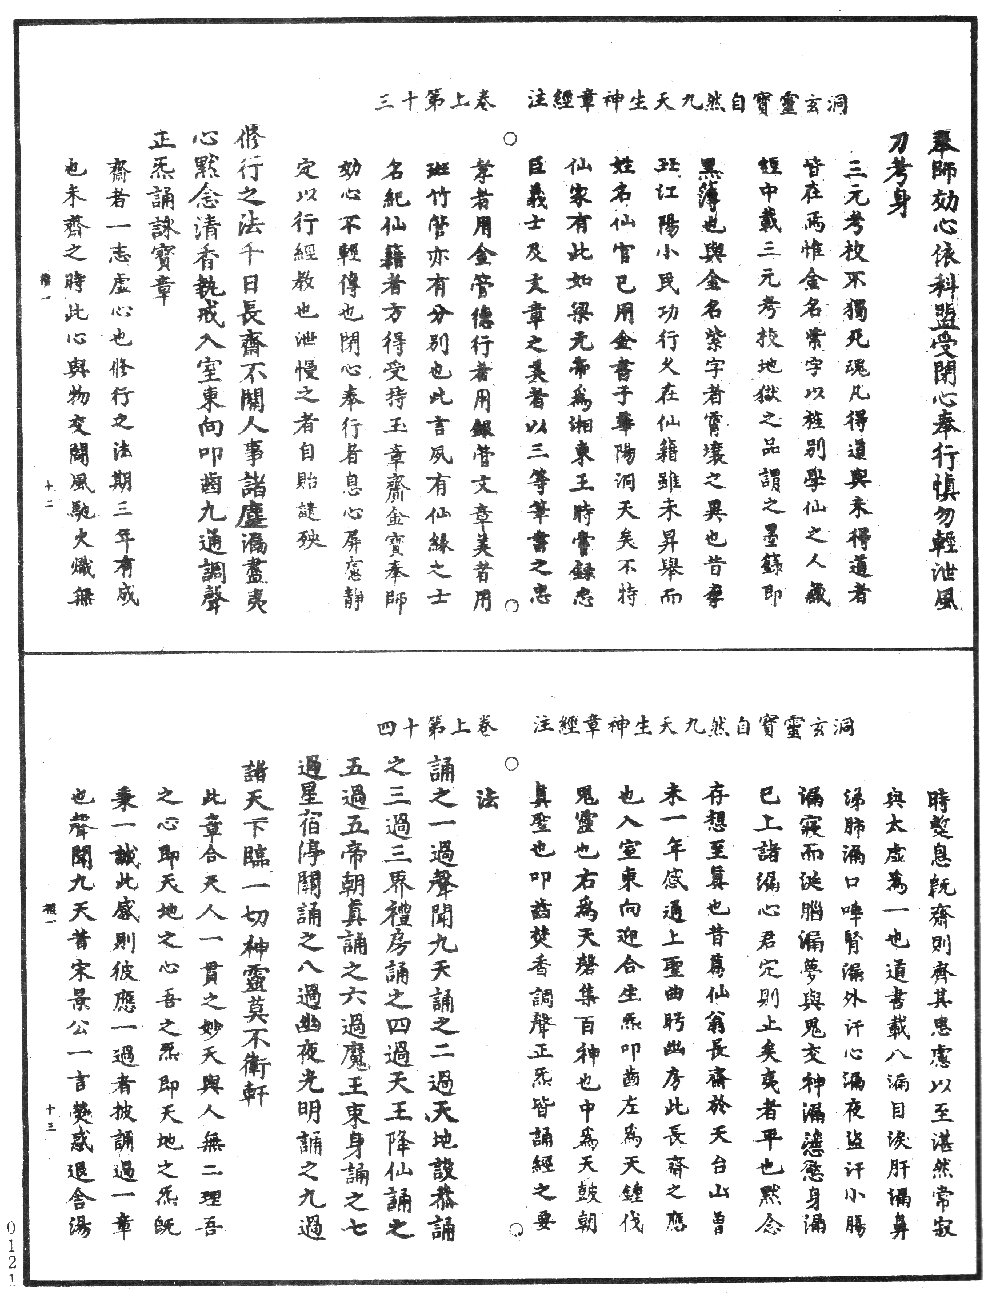 洞玄靈寶自然九天生神章經註　卷上第十三
奉師効心依科盟受閉心奉行慎勿輕泄風
刀考身
三元考校不獨死魂凡得道與未得道者
皆在焉惟金名紫字以旌別學仙之人藏
經中載三元考校地獄之品謂之墨籙即
黑簿也與金名紫字者霄壤之異也昔李
珏江陽小民功行久在仙籍雖未昇舉而
姓名仙官已用金書于華陽洞天矣不特
仙家有此如梁元帝為湘東王時嘗録忠
臣義士及文章之美者以三等筆書之忠
孝者用金管德行者用銀管文章美者用
斑竹管亦有分別也此言夙有仙緣之士
名紀仙籍者方得受持玉章齋金寶奉師
効心不輕傳也閉心奉行者息心屏慮靜
定以行經教也泄慢之者自貽譴殃
修行之法千日長齋不關人事諸塵漏盡夷
心默念清香執戒入室東向叩齒九通調聲
正炁誦詠寶章
齋者一志虛心也修行之法期三年有成
也未齋之時此心與物交鬪風馳火熾無
十二
洞玄靈寶自然九天生神章經註　卷上第十四
時蹔息既齋則齊其思慮以至湛然常寂
與太虛為一也道書載八漏目淚肝漏鼻
涕肺漏口唾腎漏外汗心漏夜盜汗小腸
漏寢而涎腦漏夢與鬼交神漏慾身漏
已上諸漏心君定則止矣夷者平也默念
存想至真也昔葛仙翁長齋於天台山曾
未一年感通上聖曲眄幽房此長齋之應
也入室東向迎合生炁叩齒左為天鍾伐
鬼靈也右為天磬集百神也中為天鼓朝
真聖也叩齒焚香調聲正炁皆誦經之要
法
誦之一過聲聞九天誦之二過天地設恭誦
之三過三界禮房誦之四過天王降仙誦之
五過五帝朝真誦之六過魔王束身誦之七
過星宿停關誦之八過幽夜光明誦之九過
諸天下臨一切神靈莫不衛軒
此章合天人一貫之妙天與人無二理吾
之心即天地之心吾之炁即天地之炁既
秉一誠此感則彼應一過者披誦過一章
也聲聞九天昔宋景公一言熒惑退舍湯
十三
0121